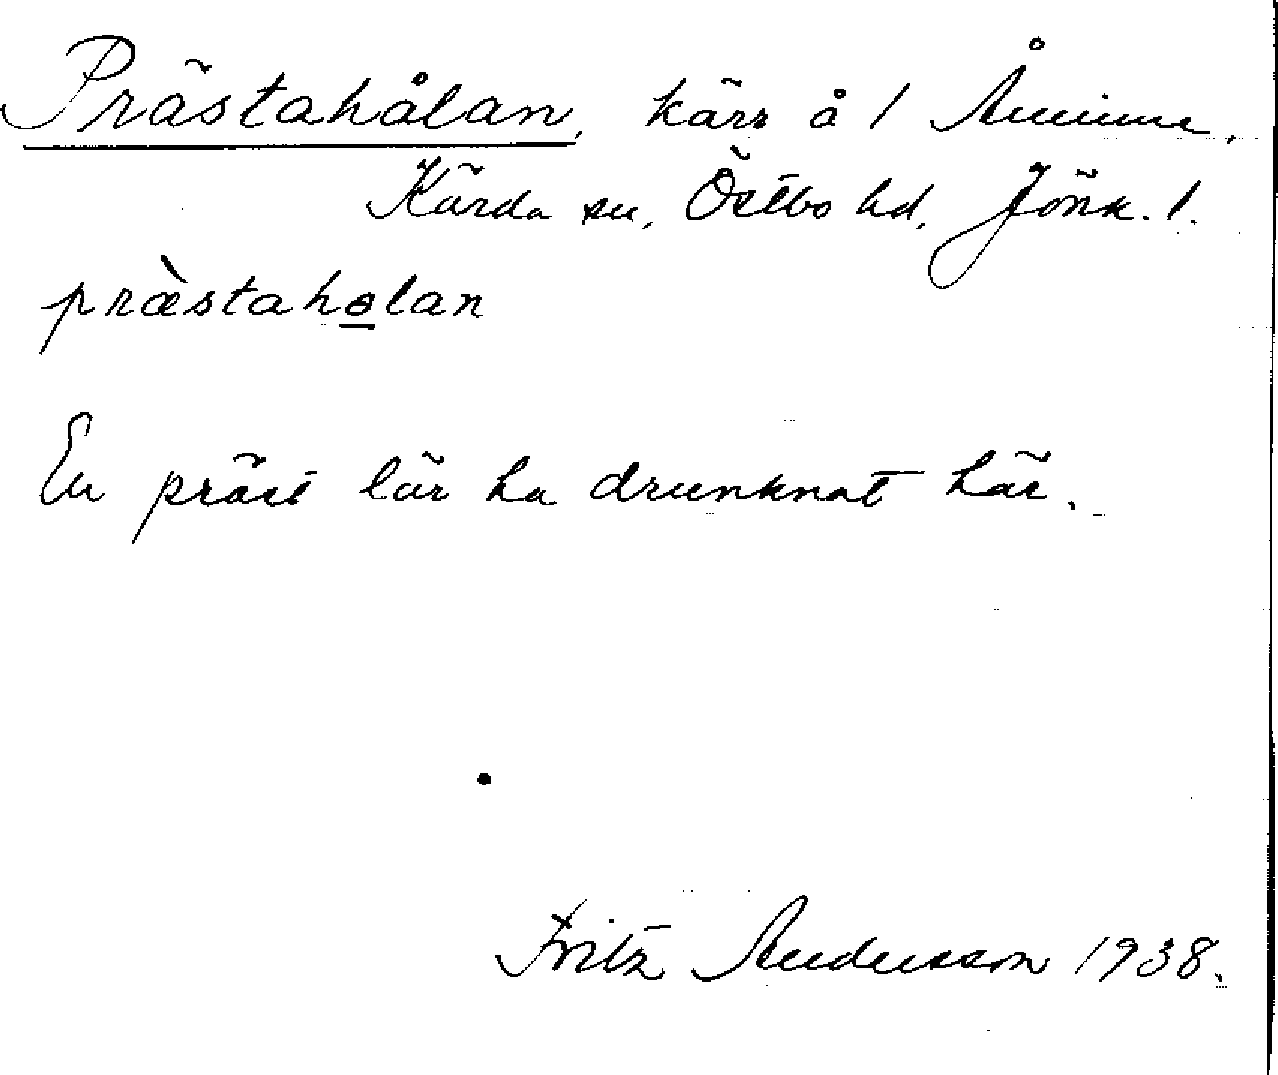 Prästahålan, kärr å 1 Åminne,
Kärda sn, Östbo hd, Jönk. l.
præ̀staho̲lan
En präst lär ha drunknat här.
Fritz Andersson 1938.